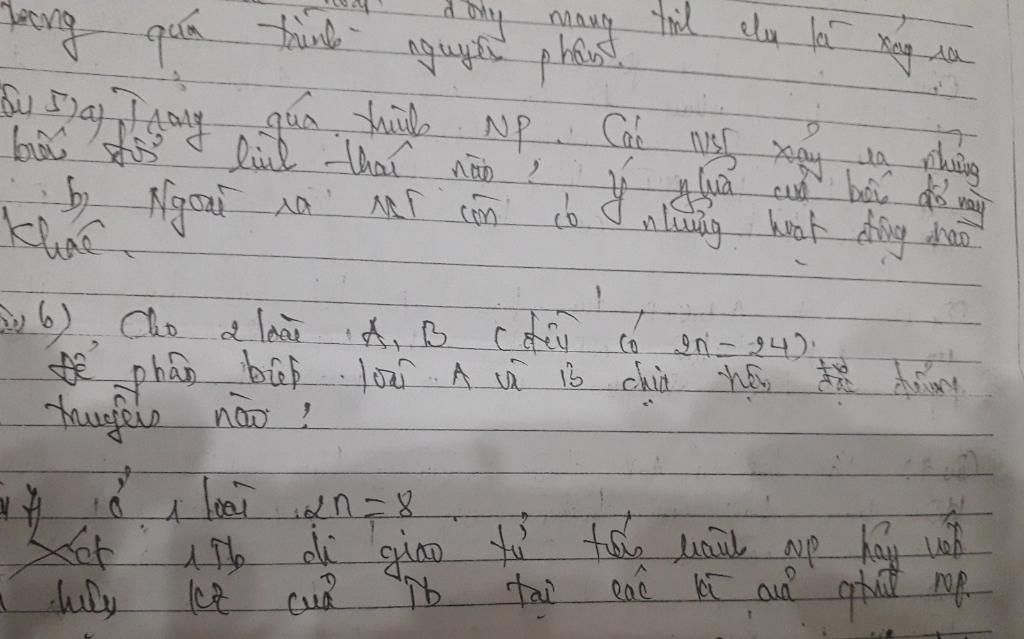 động mang tính chu kì xảy ra
trong quá trình nguyên phân.
Câu 5) a) Trong quá trình NP. Các NST xảy ra những
biến đổi hình thái nào? Ý nghĩa của biến đổi này
b, Ngoài ra NST còn có những hoạt động nào
khác.
6) Cho 2 loài A, B (đều có 2n = 24).
Để phân biệt loài A và B dựa trên đặc trưng
truyền nào?
7) Ở 1 loài 2n = 8
Xét 1 Tb di giao tử tiến hành NP hãy viết
kí hiệu của Tb tại các kì quá trình NP.